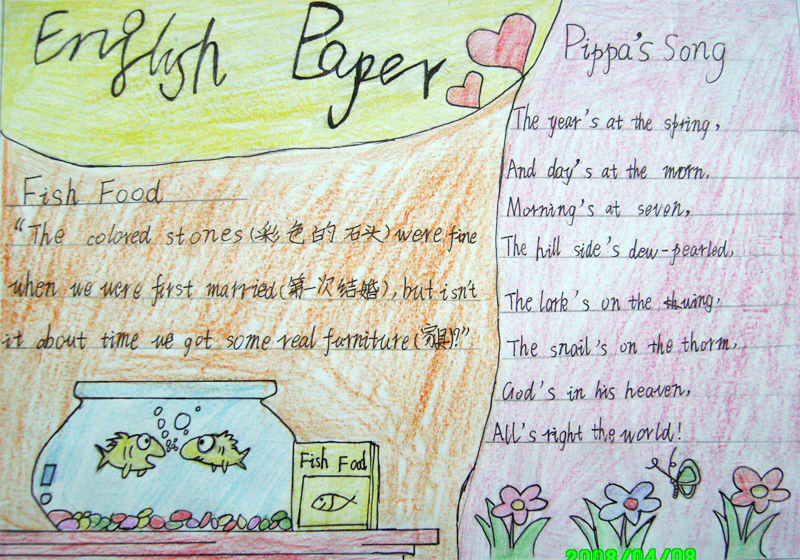 English Paper
Fish Food
"The colored stones(彩色的石头)were fine
when we were first married(第一次结婚),but isn't
it about time we got some real furniture(家具)?"
Fish Food
Pippa's Song
The year's at the spring,
And day's at the morn.
Morning's at seven,
The hill side's dew-pearled,
The lark's on the wing,
The snail's on the thorm,
God's in his heaven,
All's right the world!
2008/04/08